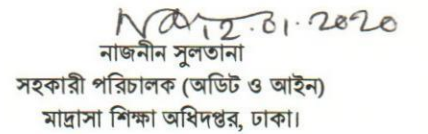 12.01.2020
নাজনীন সুলতানা
সহকারী পরিচালক (অডিট ও আইন)
মাদ্রাসা শিক্ষা অধিদপ্তর, ঢাকা।